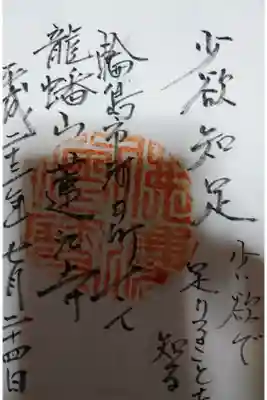 少欲知足
少欲で
足りることを
知る
輪島市
龍蟠山蓮江寺
平成二十三年七月二十四日